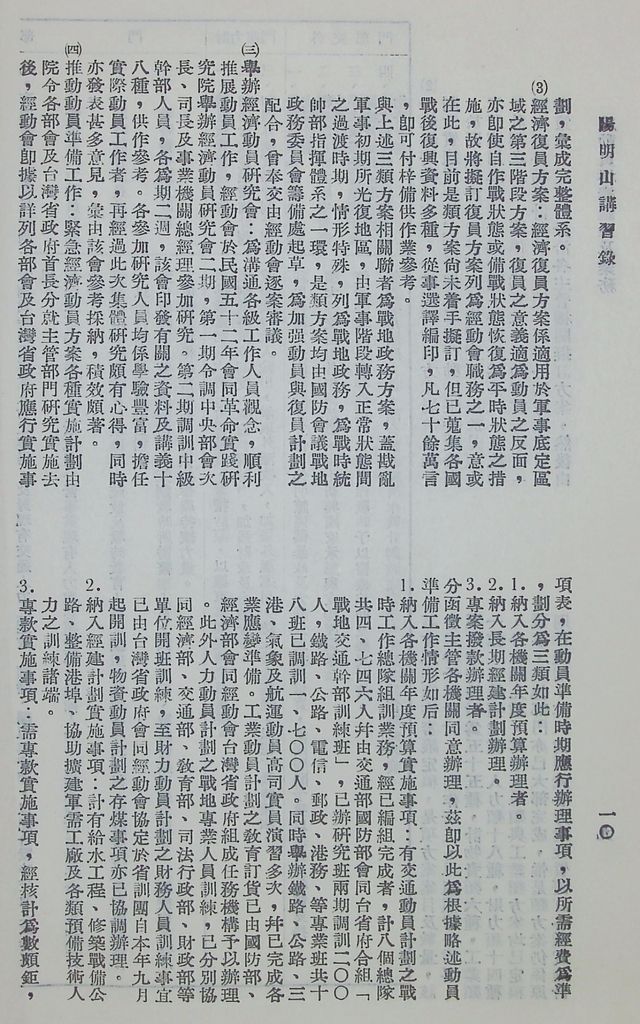 陽明山講習錄
一〇
劃，彙成完整體系。
(3)經濟復員方案：經濟復員方案係適用於軍事底定區
域之第三階段方案，復員之意義適爲動員之反面，
亦卽使自作戰狀態或備戰狀態恢復爲平時狀態之措
施，故將擬訂復員方案列爲經動會職務之一，意或
在此，目前是類方案尙未着手擬訂，但已蒐集各國
戰後復興資料多種，從事選譯編印，凡七十餘萬言
，卽可付梓備供作業參考。
與上述三類方案相關聯者爲戰地政務方案，蓋戡亂
軍事初期所光復地區，由軍事階段轉入正常狀態間
之過渡時期，情形特殊，列爲戰地政務，爲戰時統
帥部指揮體系之一環，是類方案均由國防會議戰地
政務委員會籌備處起草，爲加强動員與復員計劃之
配合，曾奉交由經動會逐案審議。
㈢舉辦經濟動員研究會：爲溝通各級工作人員觀念，順利
推展動員工作，經動會於民國五十二年會同革命實踐研
究院舉辦經濟動員研究會二期，第一期令調中央部會次
長、司長及事業機關總經理參加研究。第二期調訓中級
幹部人員，各爲期二週，該會印發有關之資料及講義十
八種，供作參考。各參加研究人員均係學驗豐富，擔任
實際動員工作者，再經過此次集體研究頗有心得，同時
亦發表甚多意見，彙由該會參考採納，積效頗著。
㈣推動動員準備工作：緊急經濟動員方案各種實施計劃由
院令各部會及台灣省政府首長分就主管部門硏究實施去
後，經動會卽據以詳列各部會及台灣省政府應行實施事
項表，在動員準備時期應行辦理事項，以所需經費爲準
，劃分爲三類如此：
1.納入各機關年度預算辦理者。
2.納入長期經建計劃辦理。
3.專案撥款辦理者。
分函徵主管各機關同意辦理，茲卽以此爲根據略述動員
準備工作情形如后：
1.納入各機關年度預算實施事項：有交通動員計劃之戰
時工作總隊組訓業務，經已編組完成者，計八個總隊
共四、七四六人幷由交通部國防部會同台省府合組「
戰地交通幹部訓練班」，已辦研究班兩期調訓二〇〇
人，鐵路、公路、電信、郵政、港務、等專業班共十
八班已調訓一、七〇〇人。同時舉辦鐵路、公路、三
港、氣象及航運動員高司實員演習多次，幷已完成各
業應變準備。工業動員計劃之教育訂貨已由國防部、
經濟部會同經動會台灣省政府組成任務機構予以辦理
。此外人力動員計劃之戰地專業人員訓練，已分別協
同經濟部、交通部、教育部、司法行政部、財政部等
單位開班訓練，至財力動員計劃之財務人員訓練事宜
已由台灣省政府會同經動會協定於省訓團自本年九月
起開訓，物資動員計劃之存煤事項亦已協調辦理。
2.納入經建計劃實施事項：計有給水工程、修築戰備公
路、整備港埠、協助擴建軍需工廠及各類預備技術人
力之訓練諸端。
3.專款實施事項：需專款實施事項，經核計爲數頗鉅，